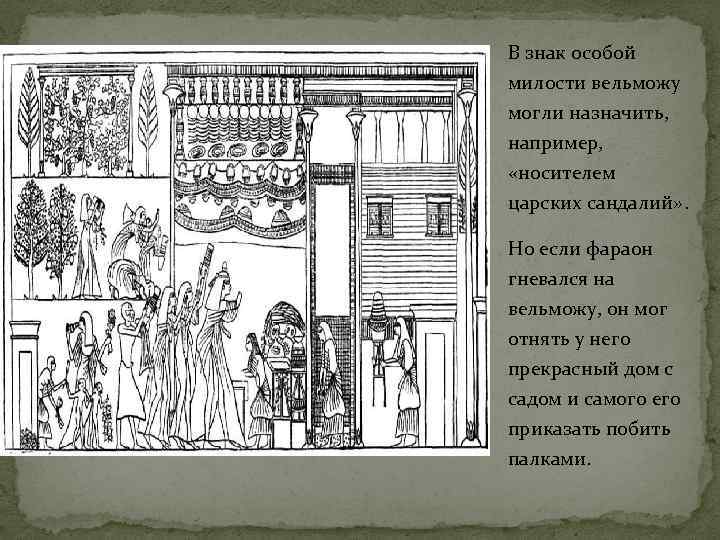 В знак особой
милости вельможу
могли назначить,
например,
«носителем
царских сандалий» .
Но если фараон
гневался на
вельможу, он мог
отнять у него
прекрасный дом с
садом и самого его
приказать побить
палками.